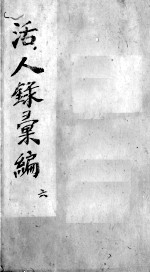 活人録彙編
六